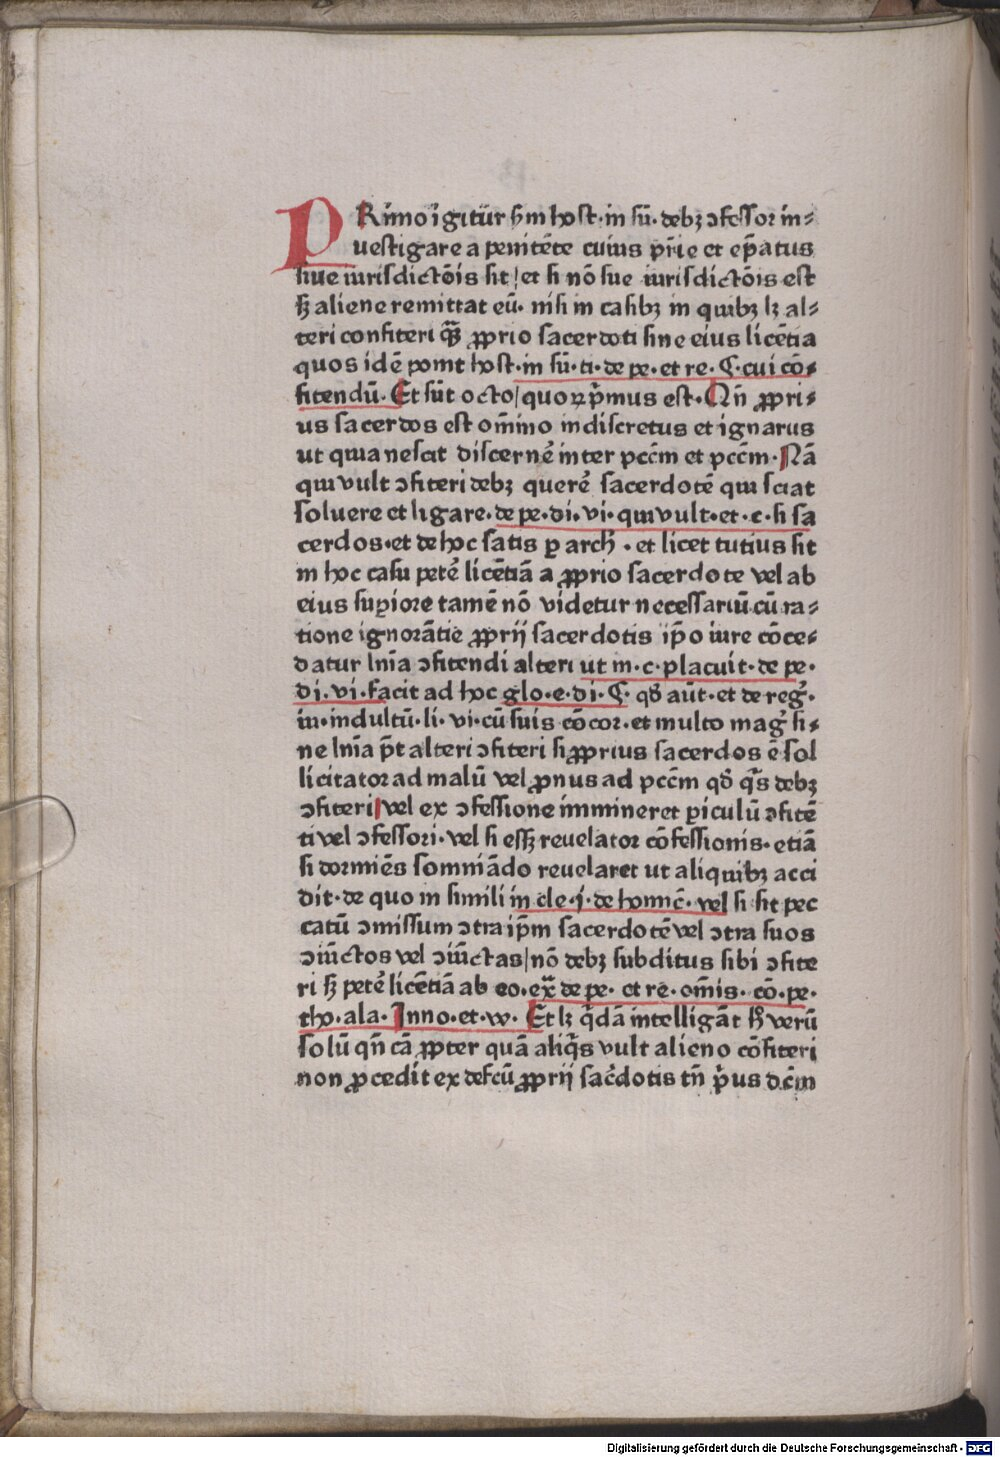 PRimo igitur ẜm host·in sū·debꝫ ↄfessor in⸗
uestigare a penitēte cuius pr̄ie et ep̄atus
siue iurisdictōis sit/et si nō sue iurisdictōis est
sꝫ aliene remittat eū·nisi in casibꝫ in quibꝫ lꝫ al⸗
teri confiteri q̄ꝫ ꝓprio sacerdoti sine eius licētia
quos idē ponit host·in sū·ti·de pe·et re·¶·cui cō⸗
fitendū·Et sūt octo/quoꝝ p̄mus est·Qn̄ ꝓpri⸗
us sacerdos est om̄ino indiscretus et ignarus
ut quia nescit discernē inter pcc̄m et pcc̄m·Nā
qui vult ↄfiteri debꝫ querē sacerdotē qui sciat
soluere et ligare·de pe·di·vi·qui vult·et·c·si sa
cerdos·et de hoc satis ꝑ arch̄·et licet tutius sit
in hoc casu petē licētiā a ꝓprio sacerdote vel ab
eius suꝑiore tamē nō videtur necessariū cū ra⸗
tione ignorātie ꝓprij sacerdotis ip̄o iure cōce⸗
datur lnīa ↄfitendi alteri ut in·c·placuit·de pe·
di·vi·facit ad hoc glo·e·di·¶·qd̄ aūt·et de reḡ·
iu·indultū·li·vi·cū suis cōcor·et multo maḡ si⸗
ne lnīa p̄t alteri ↄfiteri si ꝓprius sacerdos ē sol
licitator ad malū vel ꝓnus ad pcc̄m qd̄ q̄s debꝫ
ↄfiteri/vel ex ↄfessione immineret ꝑiculū ↄfitē
ti vel ↄfessori·vel si essꝫ reuelator cōfessionis·etiā
si dormiēs somniādo reuelaret ut aliquibꝫ acci
dit·de quo in simili in cle·j·de homic̄·vel si sit pec
catū ↄmissum ↄtra ip̄m sacerdotē vel ↄtra suos
ↄiūctos vel ↄiūctas/nō debꝫ subditus sibi ↄfite
ri sꝫ petē licētiā ab eo·ex̄ de pe·et re·om̄is·cō·pe·
tho·ala·Inno·et·w·Et lꝫ q̄dā intelligāt h̄ verū
solū qn̄ cā ꝓpter quā aliq̄s vult alieno cōfiteri
non ꝓcedit ex defcū ꝓprij sac̄dotis tn̄ p̄us dc̄m
Digitalisierung gefördert durch die Deutsche Forschungsgemeinschaft - DFG